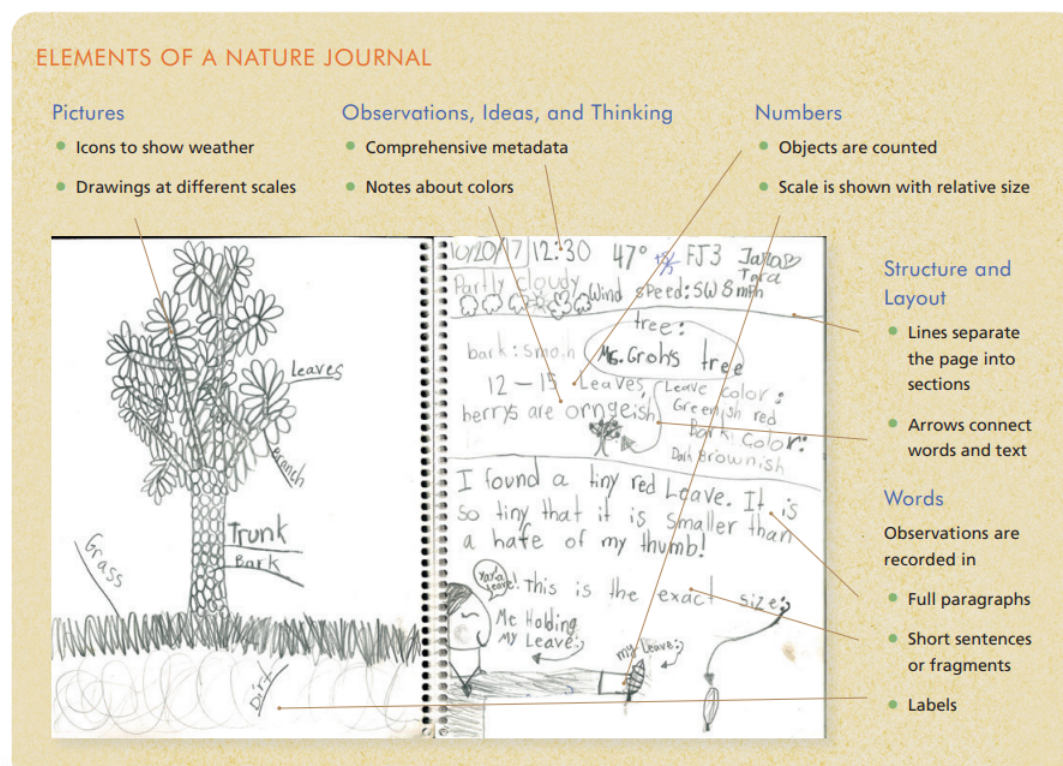 ELEMENTS OF A NATURE JOURNAL
Pictures
Icons to show weather
Drawings at different scales
Observations, Ideas, and Thinking
Comprehensive metadata
Notes about colors
Numbers
Objects are counted
Scale is shown with relative size
Structure and
Layout
Lines separate
the page into
sections
Arrows connect
words and text
Words
Observations are
recorded in
Full paragraphs
Short sentences
or fragments
Labels
leaves
Branch
Trunk
Bark
Grass
Dirt
10/20/17 12:30 47° FJ3
Tara
Partly cloudy
Wind speed: SW 8 mph
tree:
Ms. Groh's tree
bark: smoth
12 - 15 Leaves
berrys are orngeish
Leave color:
Greenish red
Bark Color:
Dark Brownish
I found a tiny red Leave. It is
so tiny that it is smaller than
a hafe of my thumb!
This is the exact size:
Me Holding
My Leave:)
my Leave:)